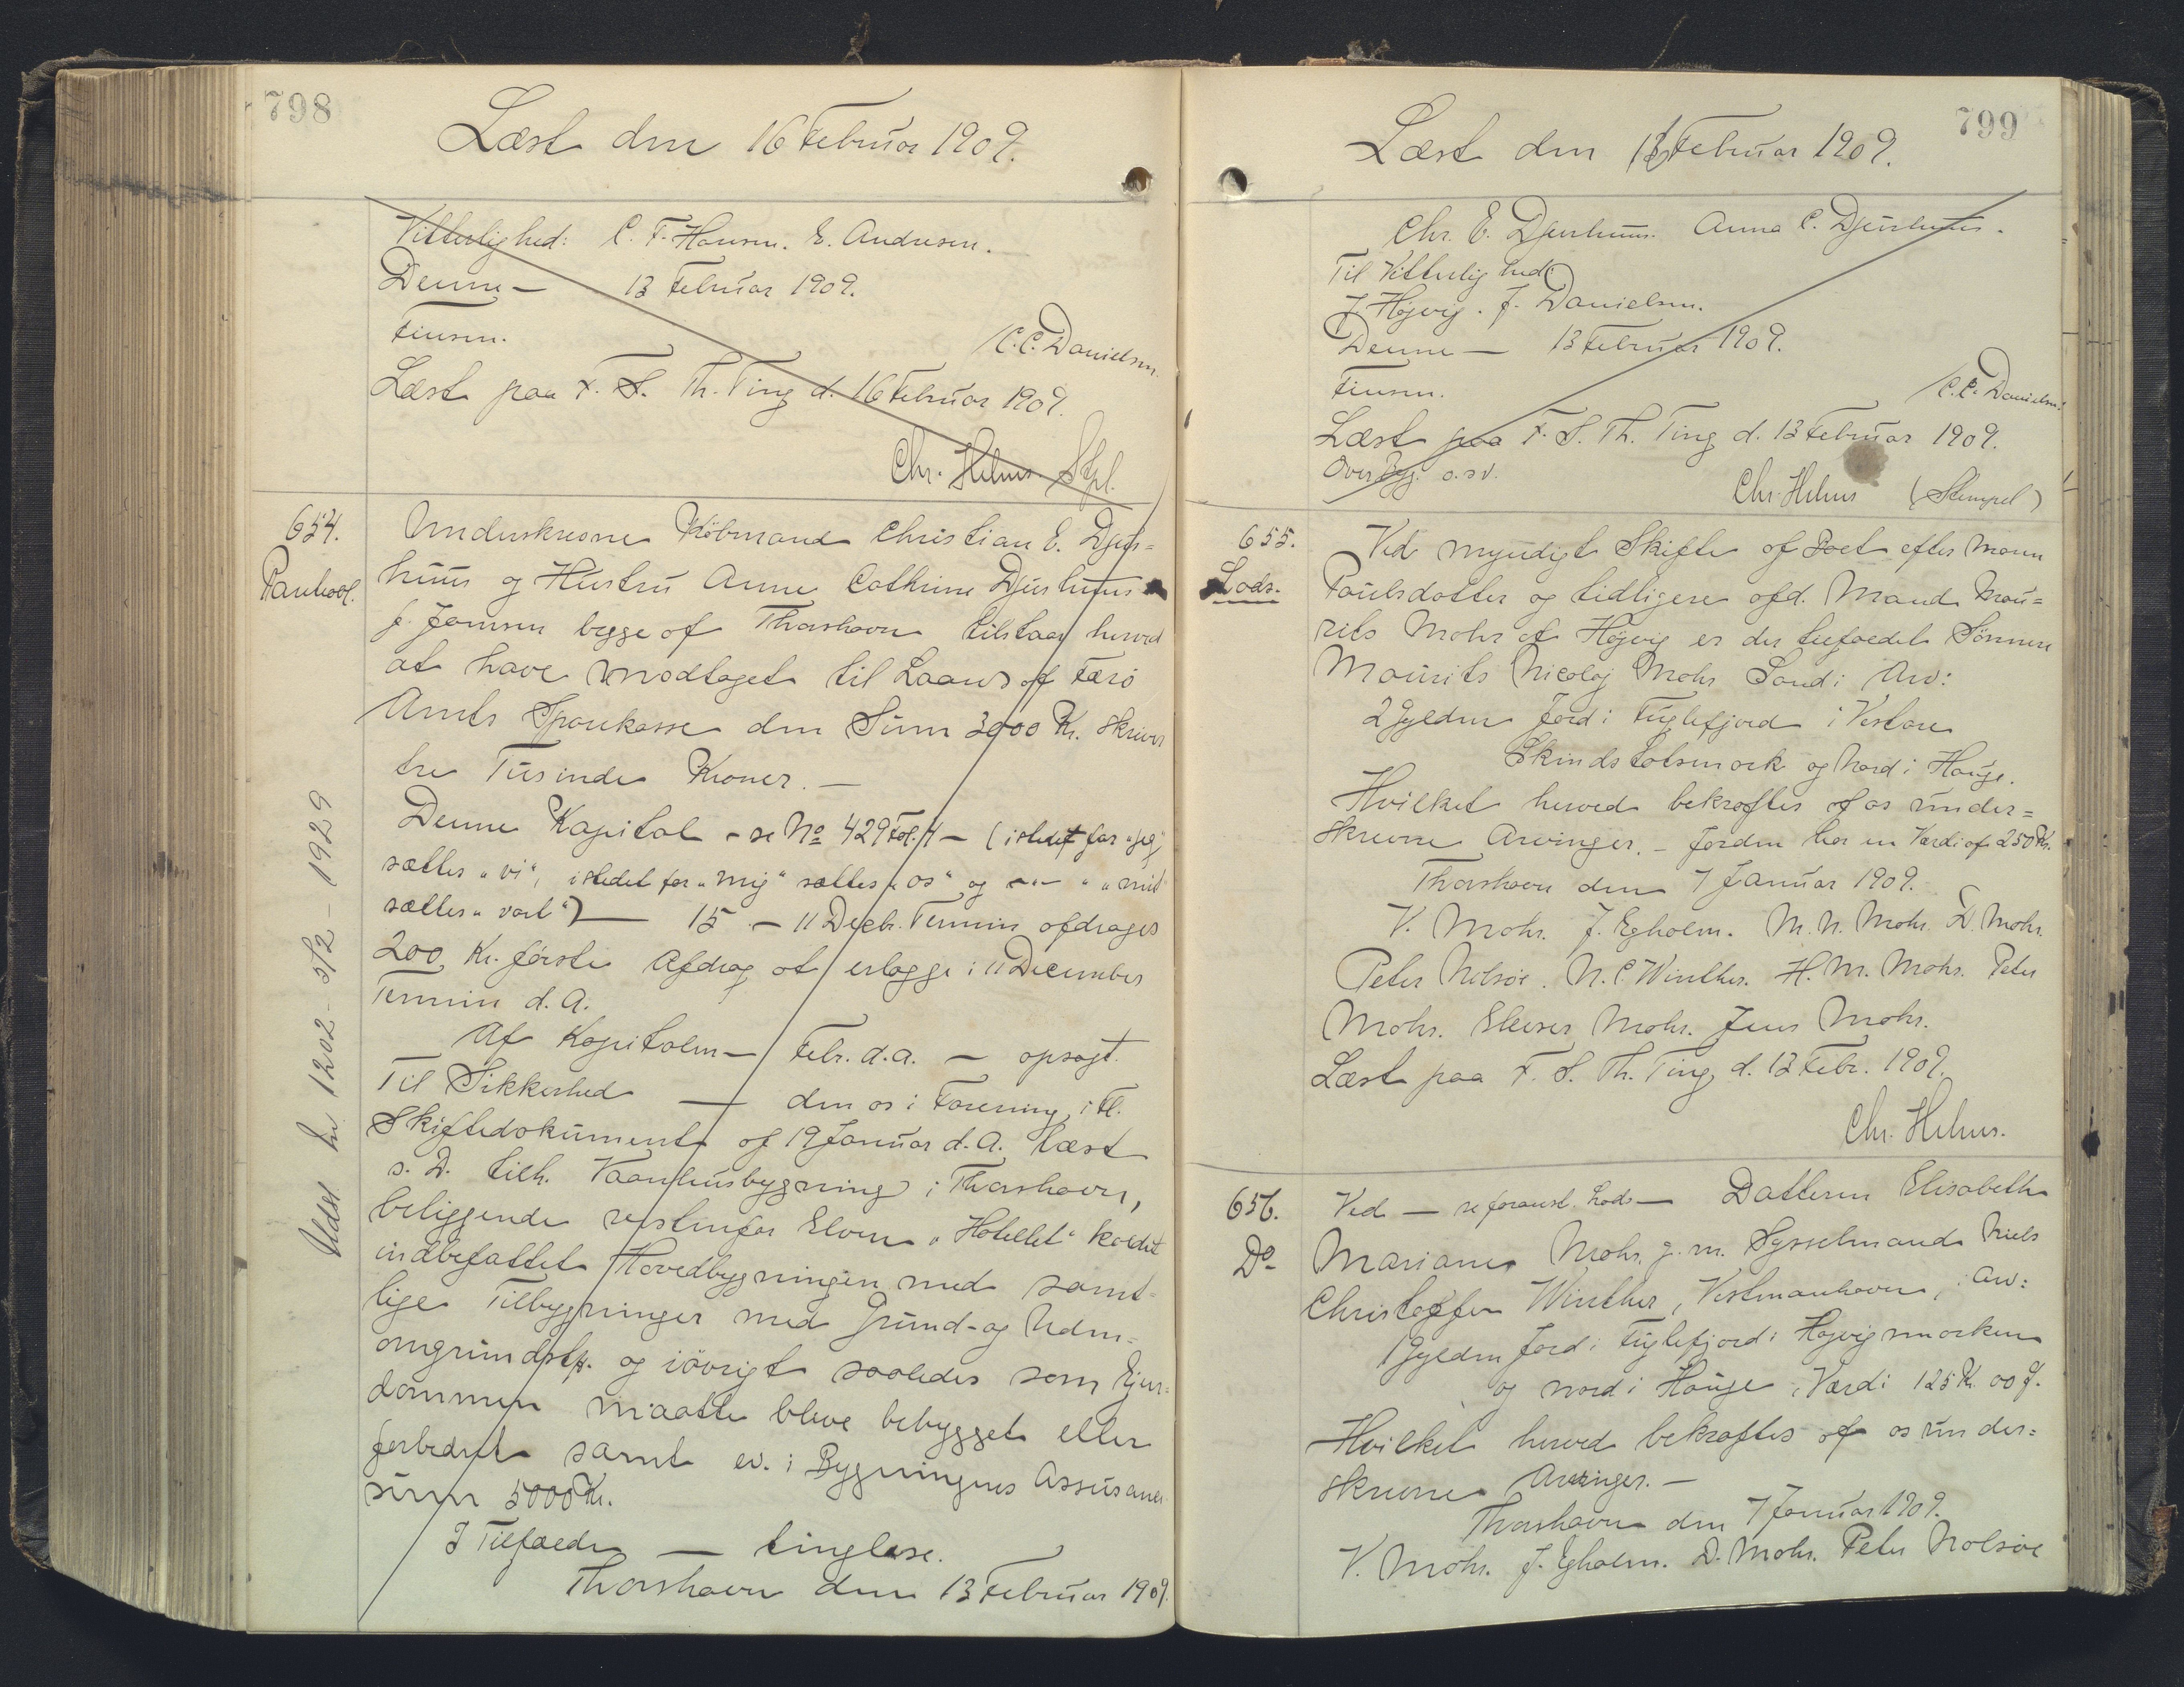 798
Læst den 16 Februar 1909.
Vitterlighed: C. F. Hansen. E. Andresen.
Denne — 13 Februar 1909.
Finsen.
C. C. Danielsen.
Læst paa F. S. Th. Ting d. 16 Februar 1909.
Chr. Helms Stpl.
654.
Panteobl.
Underskrevne Köbmand Christian E. Djur=
huus og Hustru Anne Cathrine Djurhuus
f. Jensen begge af Thorshavn tilstaar herved
at have modtaget til Laans af Færö
Amts Sparekasse den Sum 3000 Kr. skriver
tre Tusinde Kroner. —
Denne Kapital - se No 429 Fol. 4 — (istedet for "jeg"
sættes "vi", istedet for "mig" sættes "os" og —"— "mit"
sættes "vort") — 15 — 11 Decbr. Termin afdrages
200 Kr. förste Afdrag at erlægge i 11 December
Termin d. A.
Af Kapitalen — Febr. d. A. — opsagt.
Til Sikkerhed — den os i Forening, i Fl.
Skiftedokument af 19 Januar d. A. læst
s. D. tilh. Vaanhusbygning i Thorshavn,
beliggende vestenfor Elven "Hotellet" kaldet
indbefattet Hovedbygningen med samt-
lige Tilbygninger med Grund- og Uden=
omgrundstk. og iövrigt saaledes som Ejen=
dommen maatte blive bebygget eller
forbedret samt ev. i Bygningens Assurance
sum 5000 Kr.
I Tilfælde — tinglæse.
Thorshavn den 13 Februar 1909.
Udsl. Nr 1202 - 5/2 - 1929
799
Læst den 16 Februar 1909.
Chr. E. Djurhuus. Anna C. Djurhuus.
Til Vitterlighed:
J. Höjvig. J. Danielsen.
Denne — 13 Februar 1909.
Finsen.
C. C. Danielsen.
Læst paa F. S. Th. Ting d. 13 Februar 1909.
Over Byg. o.s.v.
Chr. Helms (Stempel)
655.
Lods.
Ved myndigt Skifte af Boet efter Maren
Poulsdatter og tidligere afd. Mand Mau=
rits Mohr af Höjvig er der tilfaldet Sönnen
Maurits Nicolaj Mohr Sand i Arv:
2 Gylden Jord i Fuglefjord i Vestare
Skindstolsmark og Nord i Hauge.
Hvilket herved bekræftes af os under=
skrevne Arvinger. — Jorden har en Værdi af 250 Kr.
Thorshavn den 7 Januar 1909.
V. Mohr. J. Egholm. M. N. Mohr. D. Mohr.
Peter Nolsöe. N. C. Winther. H. M. Mohr. Peter
Mohr. Elieser Mohr. Jens Mohr.
Læst paa F. S. Th. Ting, d. 13 Febr. 1909.
Chr. Helms.
656.
Do
Ved — se foranst. Lods — Datteren Elisabeth
Mariane Mohr, g. m. Sysselmand Niels
Christoffer Winther, Vestmanhavn, i Arv:
1 Gylden Jord i Fuglefjord i Højvigsmarken
og nord i Hauge, Værdi 125 Kr. 00 Ø.
Hvilket herved bekræftes af os under=
skrevne Arvinger. —
Thorshavn den 7 Januar 1909.
V. Mohr. J. Egholm. D. Mohr. Peter Nolsöe